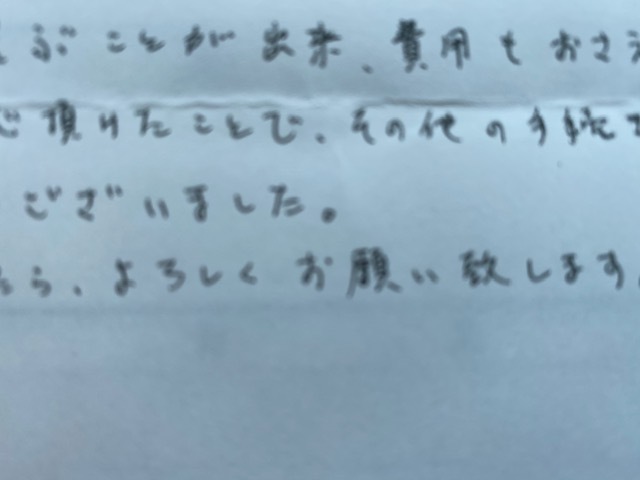 ぶことが出来、費用もおさえ
頂けたことで、その他の手続
ございました。
たら、よろしくお願い致します